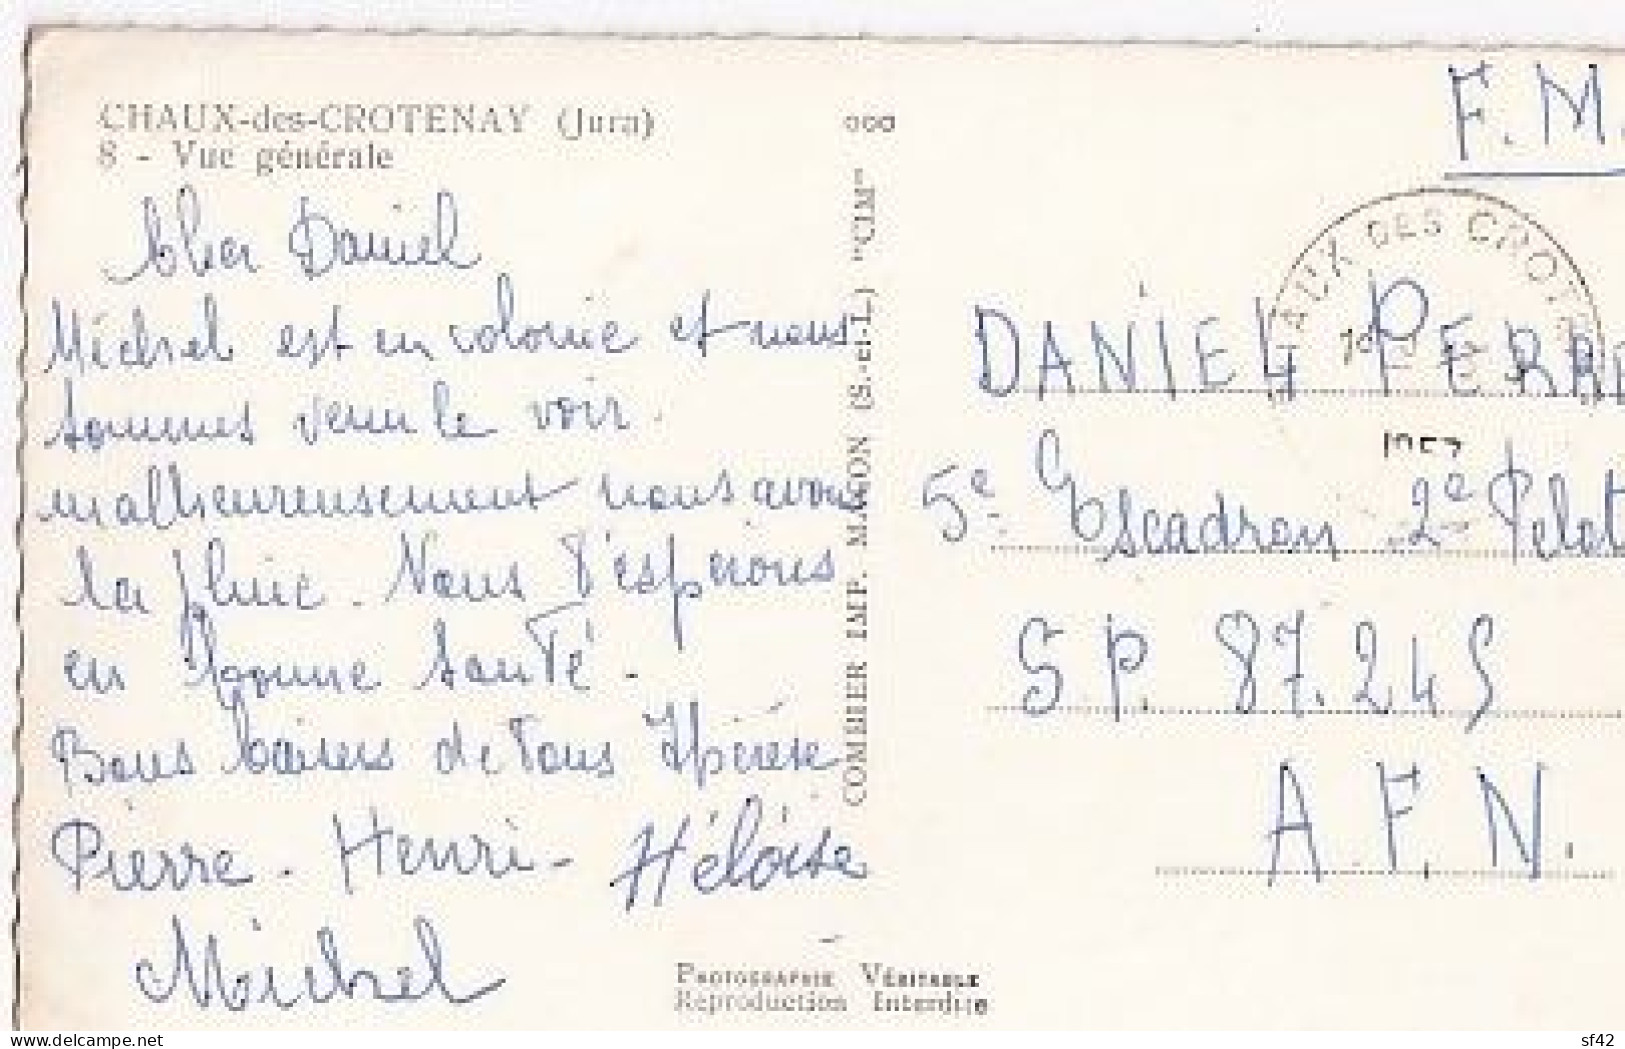 CHAUX-des-CROTENAY (Jura)
8 - Vue générale
Cher Daniel
Michel est en colonie et nous
sommes venu le voir.
malheureusement nous avons
la pluie. Nous t'espérons
en bonne santé.
Bons baisers de tous Thérèse
Pierre - Henri - Héloïse
Michel
COMBIER IMP. MACON (S.-et-L.) "CIM"
PHOTOGRAPHIE VÉRITABLE
Reproduction Interdite
F.M.
AUX DES CROTE
DANIEL PERR
5e Escadron 2e Pelot
S.P. 87.245
A.F.N.
delcampe.net
sf42